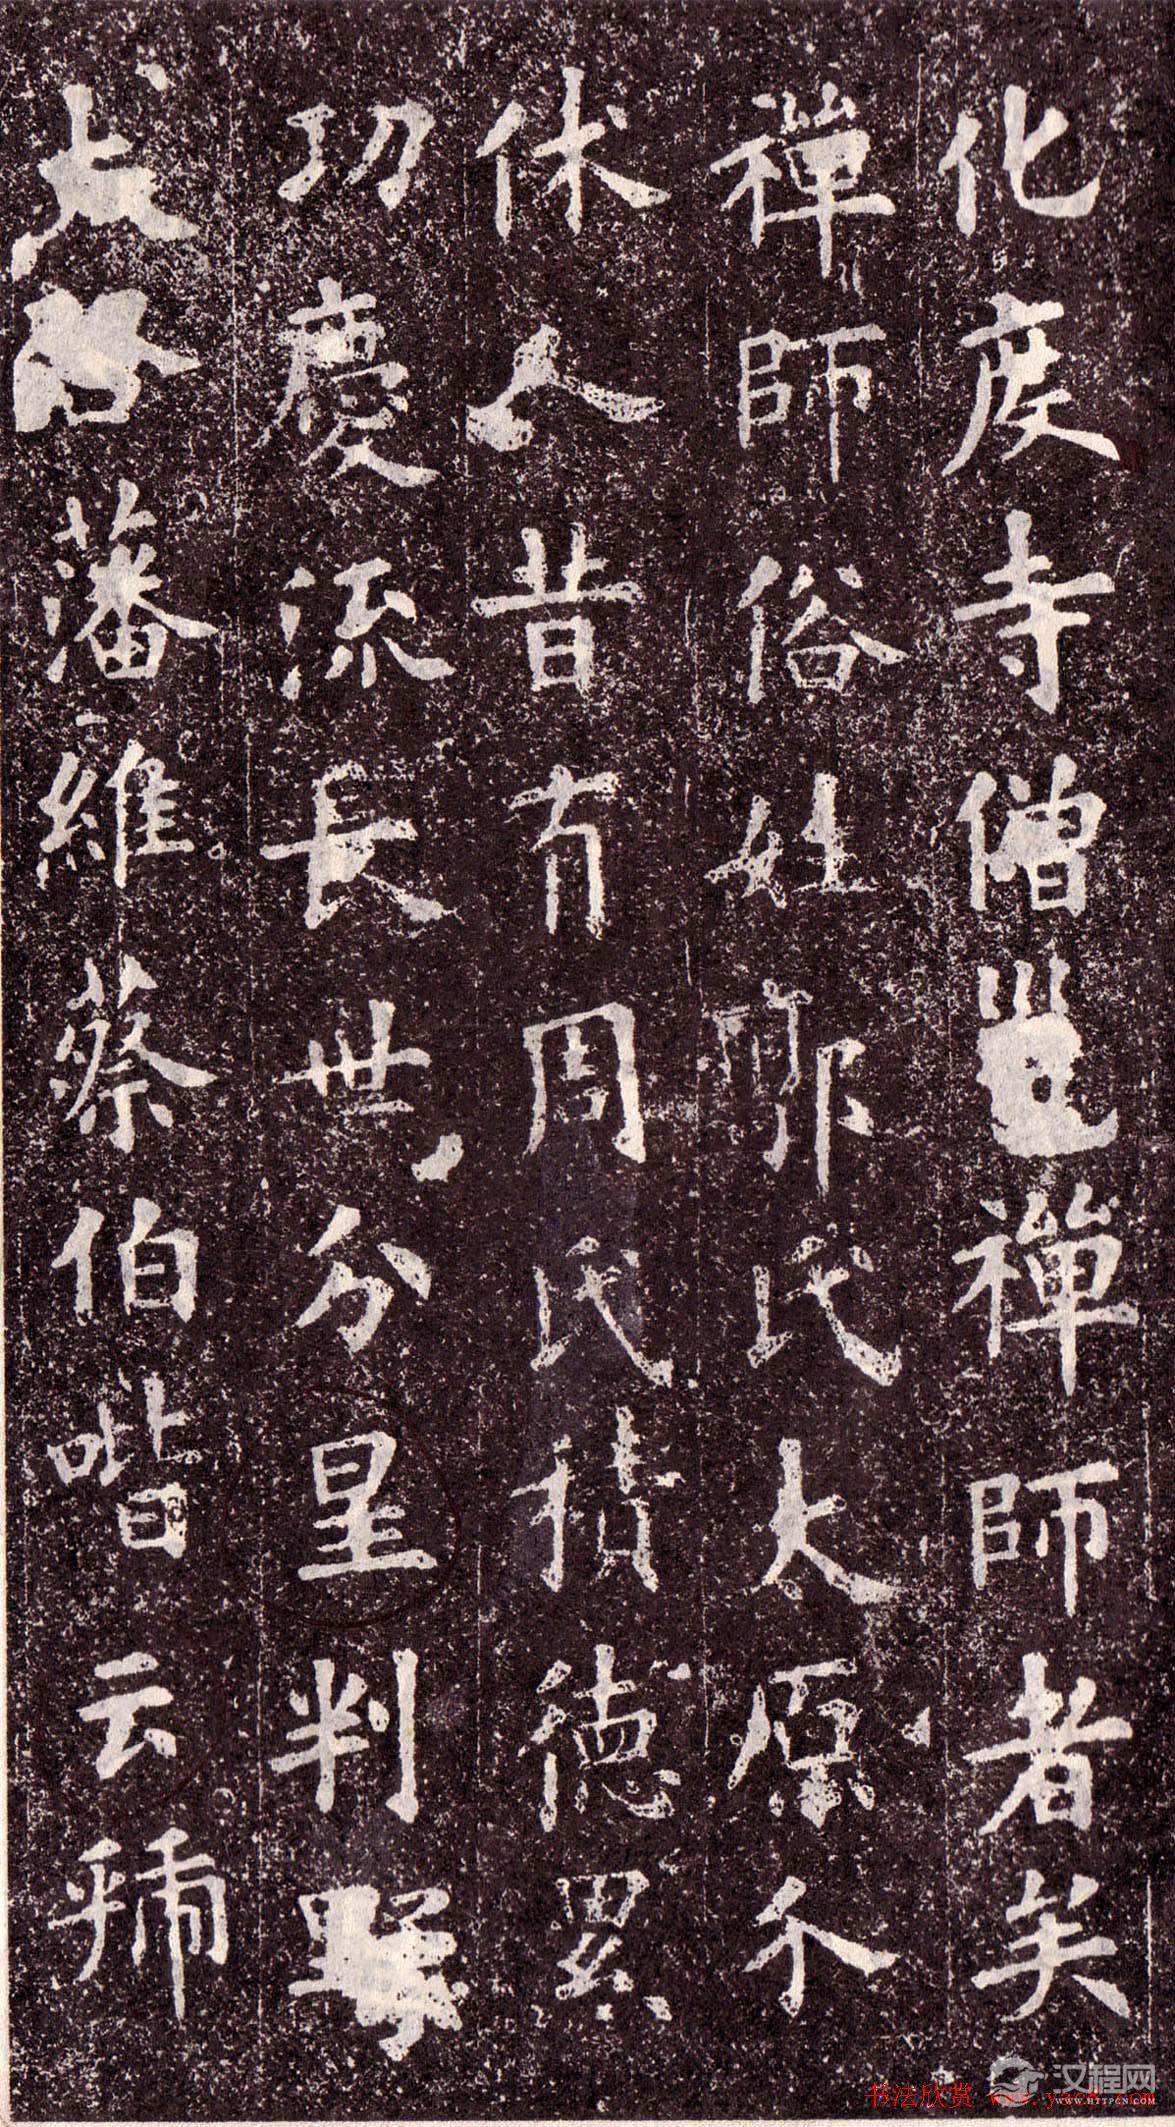 化度寺僧邕禪師者矣
禪師俗姓郭氏太原介
休人昔有周氏積德累
功慶流長世分星判野
大啓藩維蔡伯喈云虢
汉程网
WWW.HTTPCN.COM
书法欣赏